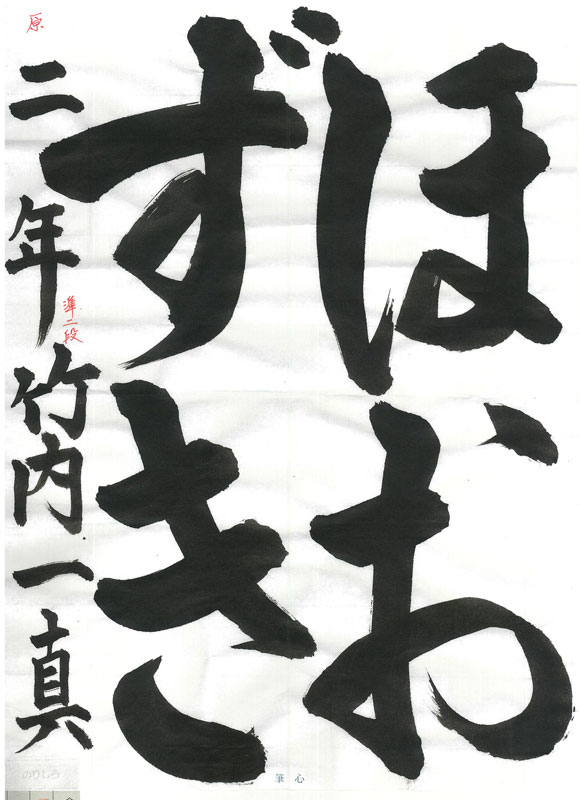 ほお
ずき
二年 竹内一真
原
準二段
のりしろ
筆心